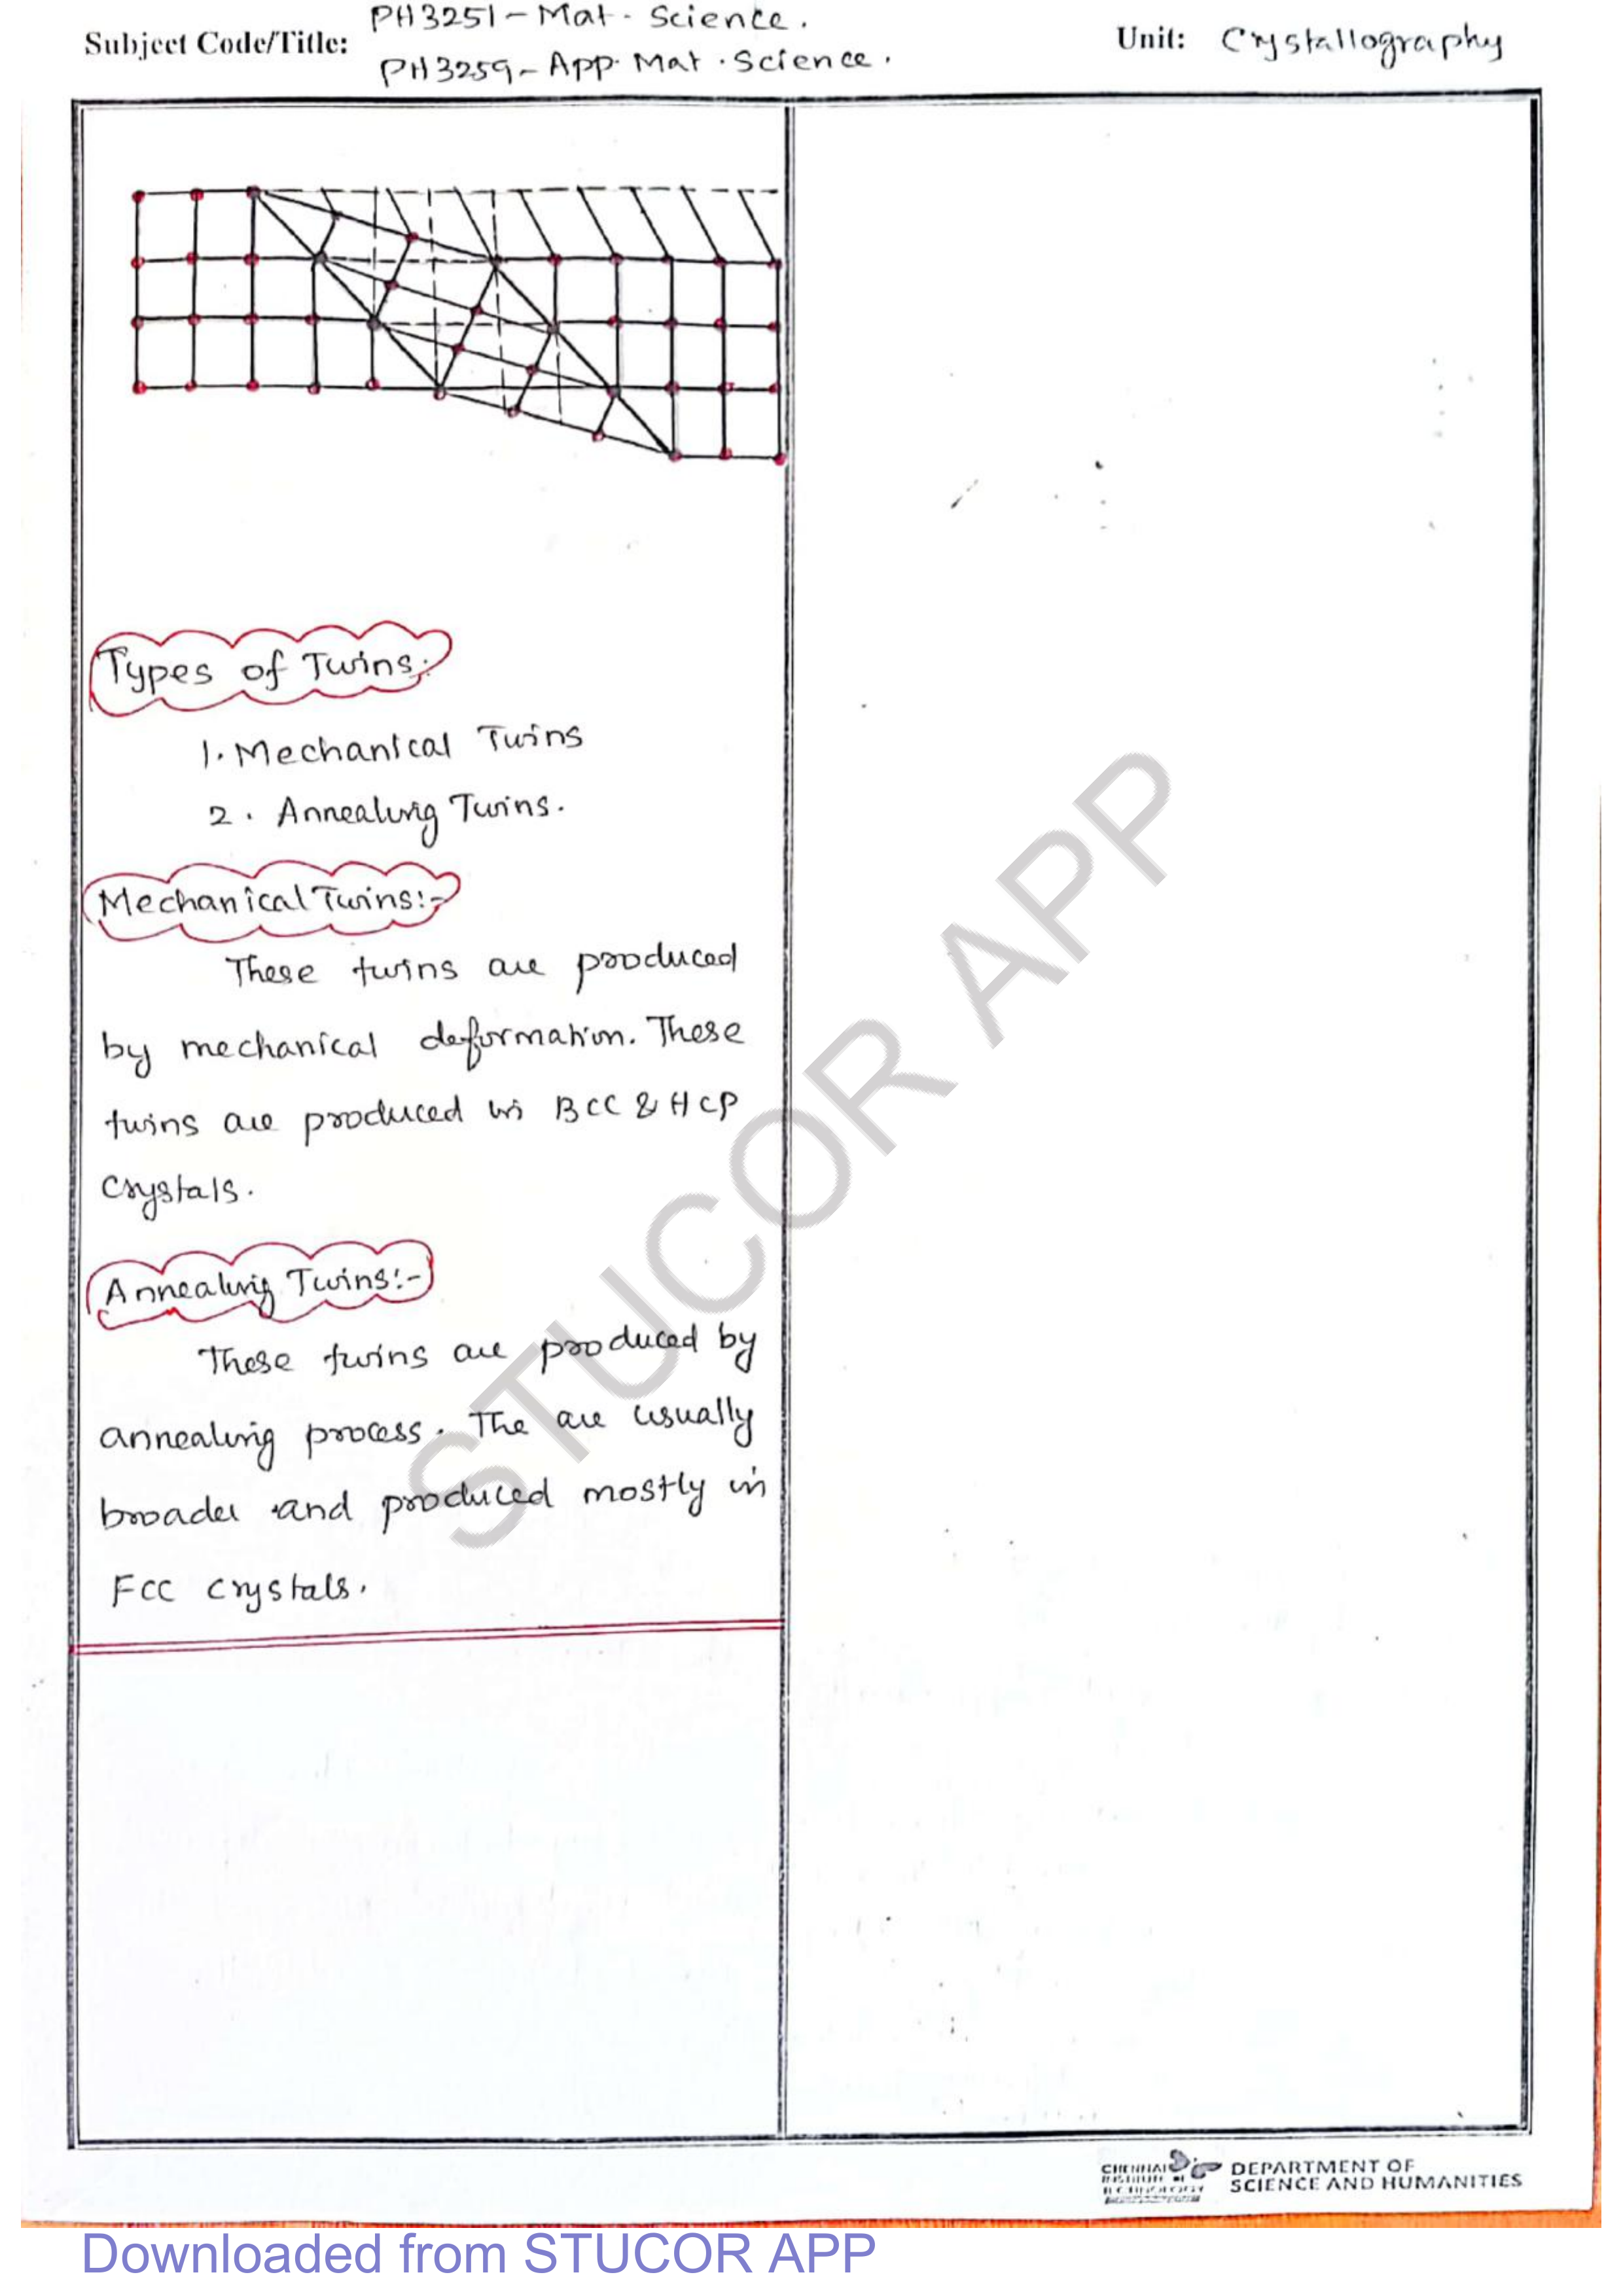 PH3251 - Mat. Science.
Subject Code/Title:
PH3259 - App. Mat. Science.
Unit: Crystallography
Types of Twins:
1. Mechanical Twins
2. Annealing Twins.
Mechanical Twins:-
These twins are produced
by mechanical deformation. These
twins are produced in BCC & HCP
Crystals.
Annealing Twins:-
These twins are produced by
annealing process. The are usually
broader and produced mostly in
FCC crystals.
STUCOR APP
CHENNAI
INSTITUTE OF
TECHNOLOGY
DEPARTMENT OF
SCIENCE AND HUMANITIES
Downloaded from STUCOR APP